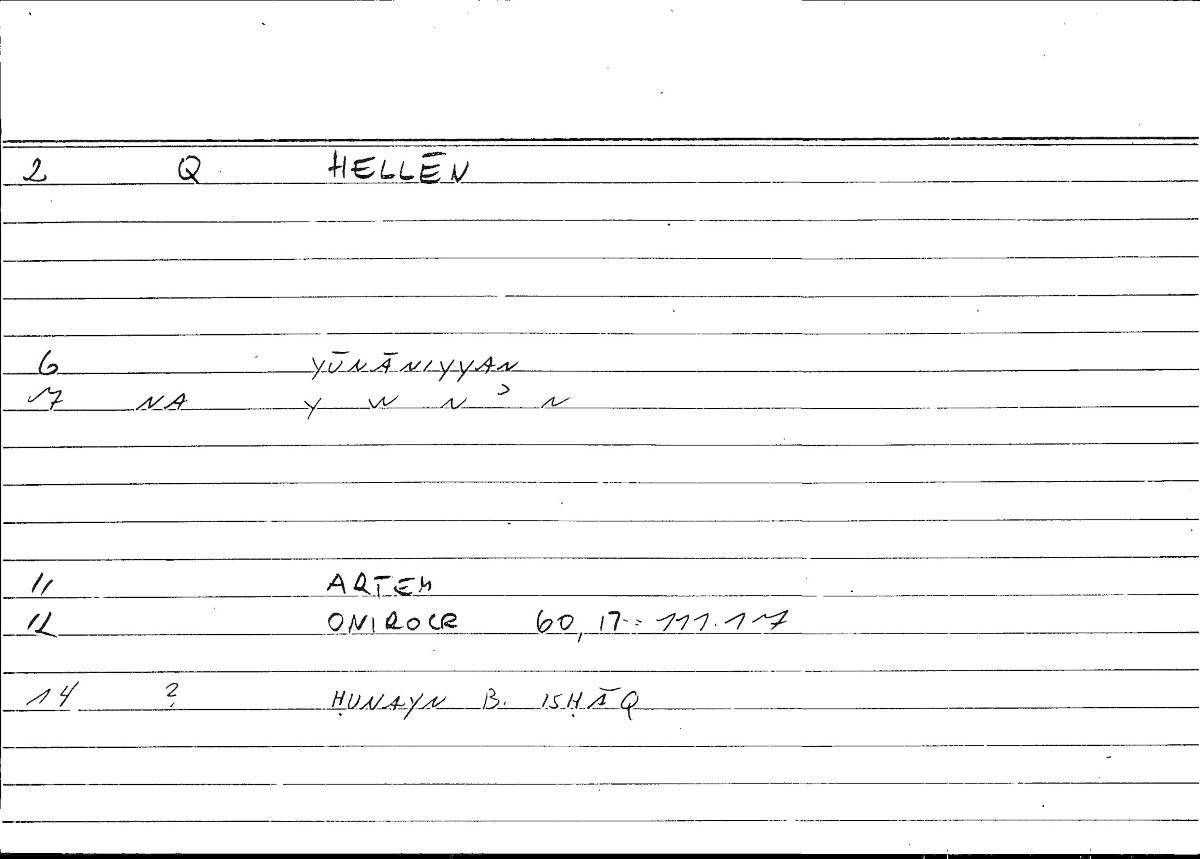 2 Q HELLĒN
6 YŪNĀNIYYAN
7 NA Y W N ʾ N
11 ARTEM
12 ONIROCR 60,17 : 111.17
14 ? ḤUNAYN B. ISḤĀQ